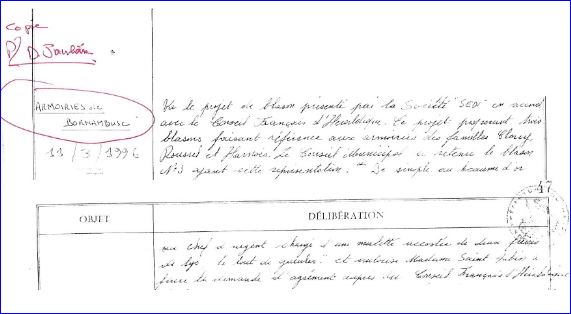 Copie
D. Paulain
ARMOIRIES de
BORNAMBUSC
11/3/1996
Vu le projet de blason présenté par la Société "SEDI" en accord
avec le Conseil Français d'Héraldique. Ce projet proposant trois
blasons faisant référence aux armoiries des familles
Roussel et Le Conseil Municipal a retenu le blason
N°3 ayant cette représentation : "De sinople au heaume d'or
47
OBJET
DÉLIBÉRATION
au chef d'argent chargé d'une merlette accostée de deux
de lys le tout de gueules" et autorise Madame Saint Aubin à
faire la demande d'agrément auprès du Conseil Français d'Héraldique